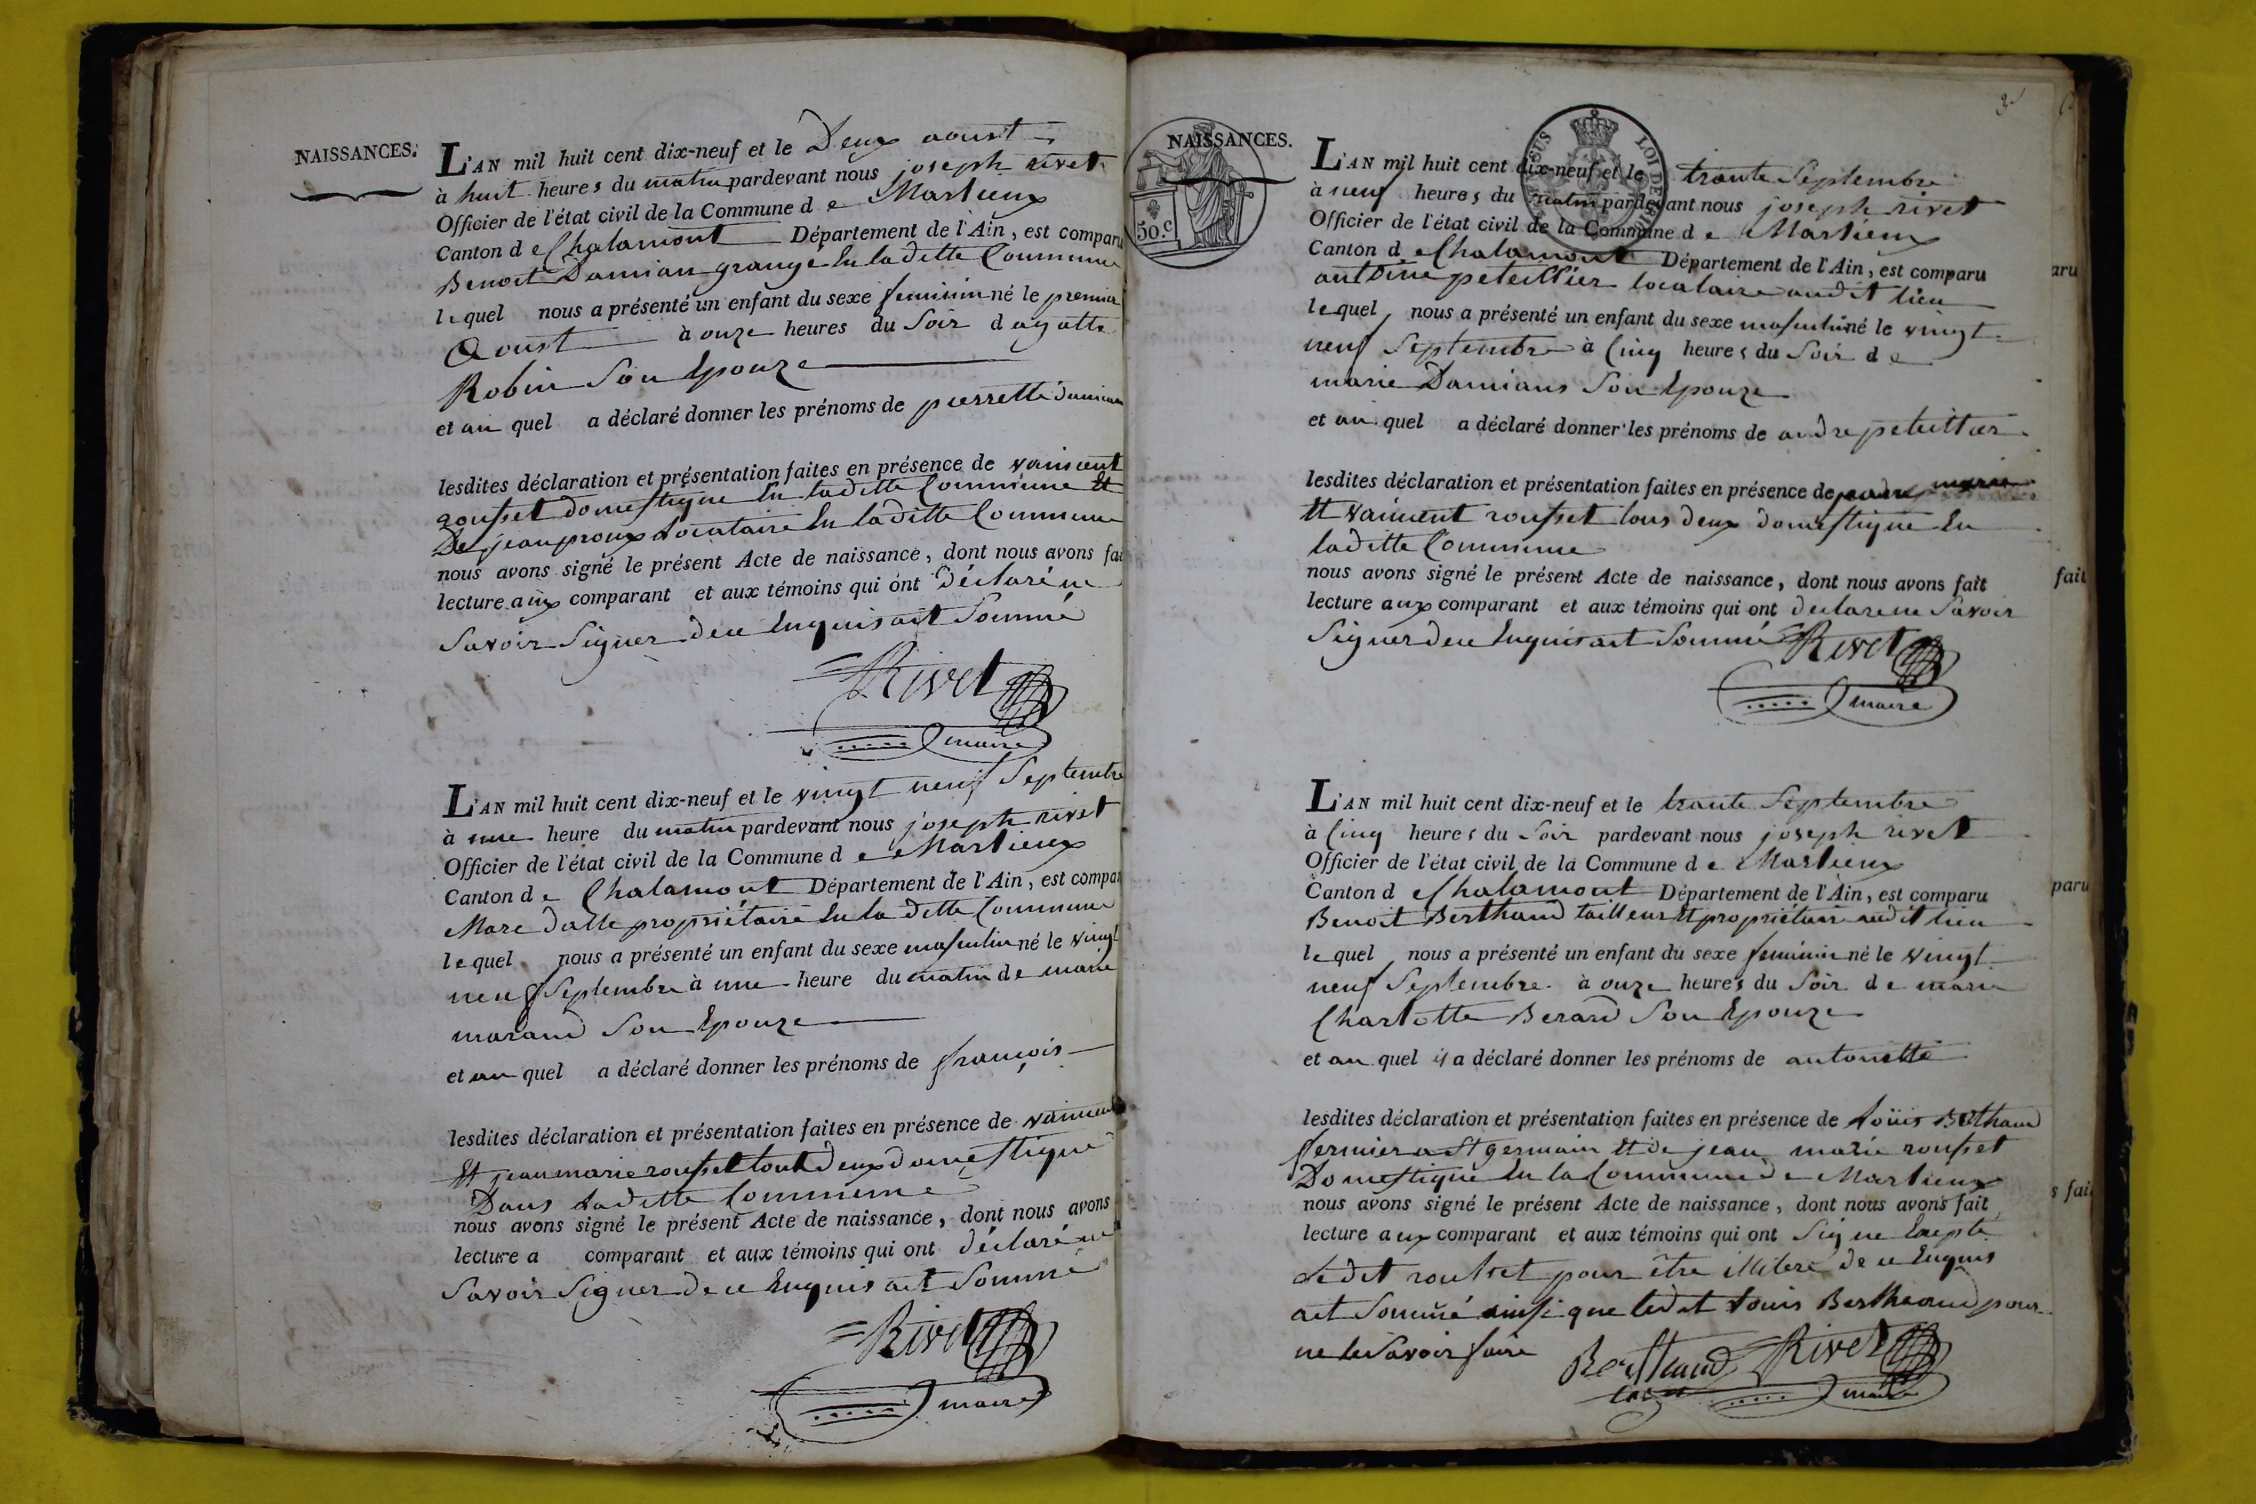 NAISSANCES.
L'AN mil huit cent dix-neuf et le Deux aoust
à huit heures du matin pardevant nous joseph rivet
Officier de l'état civil de la Commune d e Marlieux
Canton d e Chalamont Département de l'Ain, est comparu
Benoit Damian grangé En la ditte Commune
le quel nous a présenté un enfant du sexe feminin né le premier
Aoust à onze heures du Soir d agatte
Robin Son Epouze
et au quel a déclaré donner les prénoms de pierrette damian
lesdites déclaration et présentation faites en présence de vaincent
rousset domestique En la ditte Commune Et
De jean proux Locataire En la ditte Commune
nous avons signé le présent Acte de naissance, dont nous avons fai
lecture aux comparant et aux témoins qui ont déclaré ne
Savoir Signer de ce Enquis ait Sommé
Rivet
maire
L'AN mil huit cent dix-neuf et le vingt neuf Septembre
à une heure du matin pardevant nous joseph rivet
Officier de l'état civil de la Commune d e Marlieux
Canton d e Chalamont Département de l'Ain, est compar
Marc dalle propriétaire En la ditte Commune
le quel nous a présenté un enfant du sexe masculin né le vingt
neuf Septembre à une heure du matin de marie
marand Son Epouze
et au quel a déclaré donner les prénoms de françois
lesdites déclaration et présentation faites en présence de vaincent
Et jean marie rousset tout deux domestique
Dans Laditte Commune
nous avons signé le présent Acte de naissance, dont nous avons
lecture a comparant et aux témoins qui ont déclaré ne
Savoir Signer de ce Enquis ait Sommé
Rivet
maire
2
NAISSANCES.
50 c
LOI DE
L'AN mil huit cent dix-neuf et le trante Septembre
à neuf heures du matin pardevant nous joseph rivet
Officier de l'état civil de la Commune d e Marlieux
Canton d e Chalamont Département de l'Ain, est comparu
antoine peteittier localaire audit lieu
le quel nous a présenté un enfant du sexe masculin né le vingt
neuf Septembre à Cinq heures du Soir d e
marie Damians Son Epouze
et au quel a déclaré donner les prénoms de andre peteittier
lesdites déclaration et présentation faites en présence de marie
Et vaincent rousset tous deux domestique En
laditte Commune
nous avons signé le présent Acte de naissance, dont nous avons fait
lecture aux comparant et aux témoins qui ont declare ne Savoir
Signer de ce Enquis ait Sommé Rivet
maire
L'AN mil huit cent dix-neuf et le trante Septembre
à Cinq heures du Soir pardevant nous joseph rivet
Officier de l'état civil de la Commune d e Marlieux
Canton d e Chalamont Département de l'Ain, est comparu
Benoit Berthaud tailleur Et propriétaire audit lieu
le quel nous a présenté un enfant du sexe feminin né le vingt
neuf Septembre à onze heures du Soir d e marie
Charlotte Berard Son Epouze
et au quel il a déclaré donner les prénoms de antoinette
lesdites déclaration et présentation faites en présence de Loüis Berthaud
fermier a St germain Et de jean marie rousset
Domestique En la Commune de Marlieux
nous avons signé le présent Acte de naissance, dont nous avons fait
lecture aux comparant et aux témoins qui ont Signe Exepté
Ledit rousset pour être illiteré de ce Enquis
ait Sommé ainsi que ledit Louis Bertheaud pour
ne le Savoir faire
Berthaud Rivet
maire
aru
fait
paru
s fait